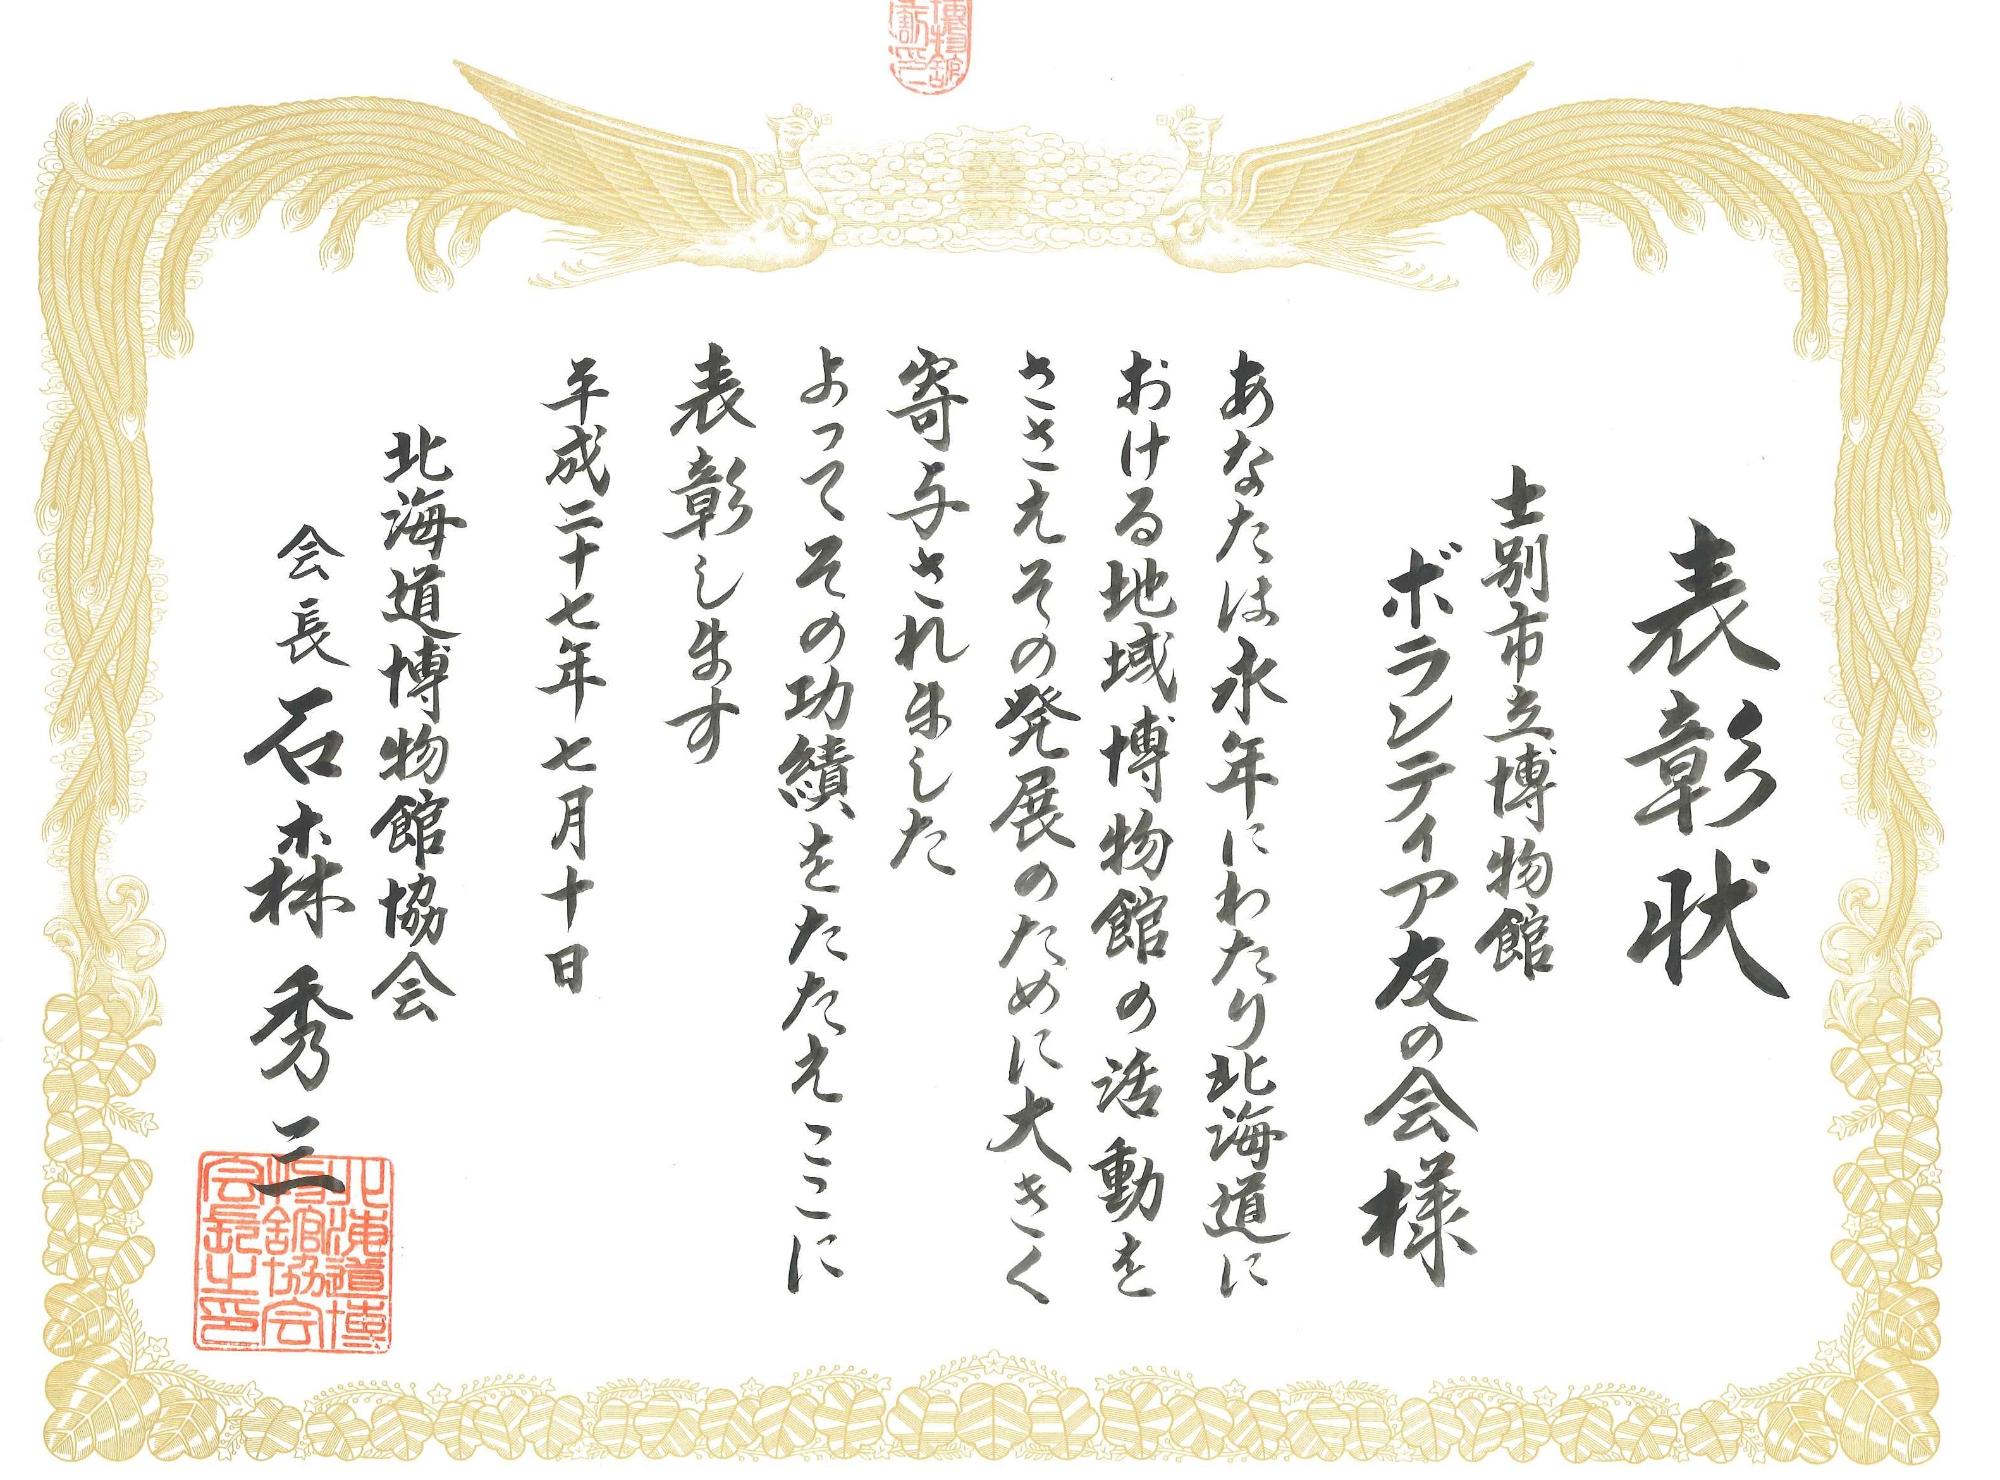 表彰状
士別市立博物館
ボランティア友の会様
あなたは永年にわたり北海道に
おける地域博物館の活動を
ささえその発展のために大きく
寄与されました
よってその功績をたたえここに
表彰します
平成二十七年七月十日
北海道博物館協会
会長 石森秀三
北海道博
物館協会
会長之印
博物館
割印